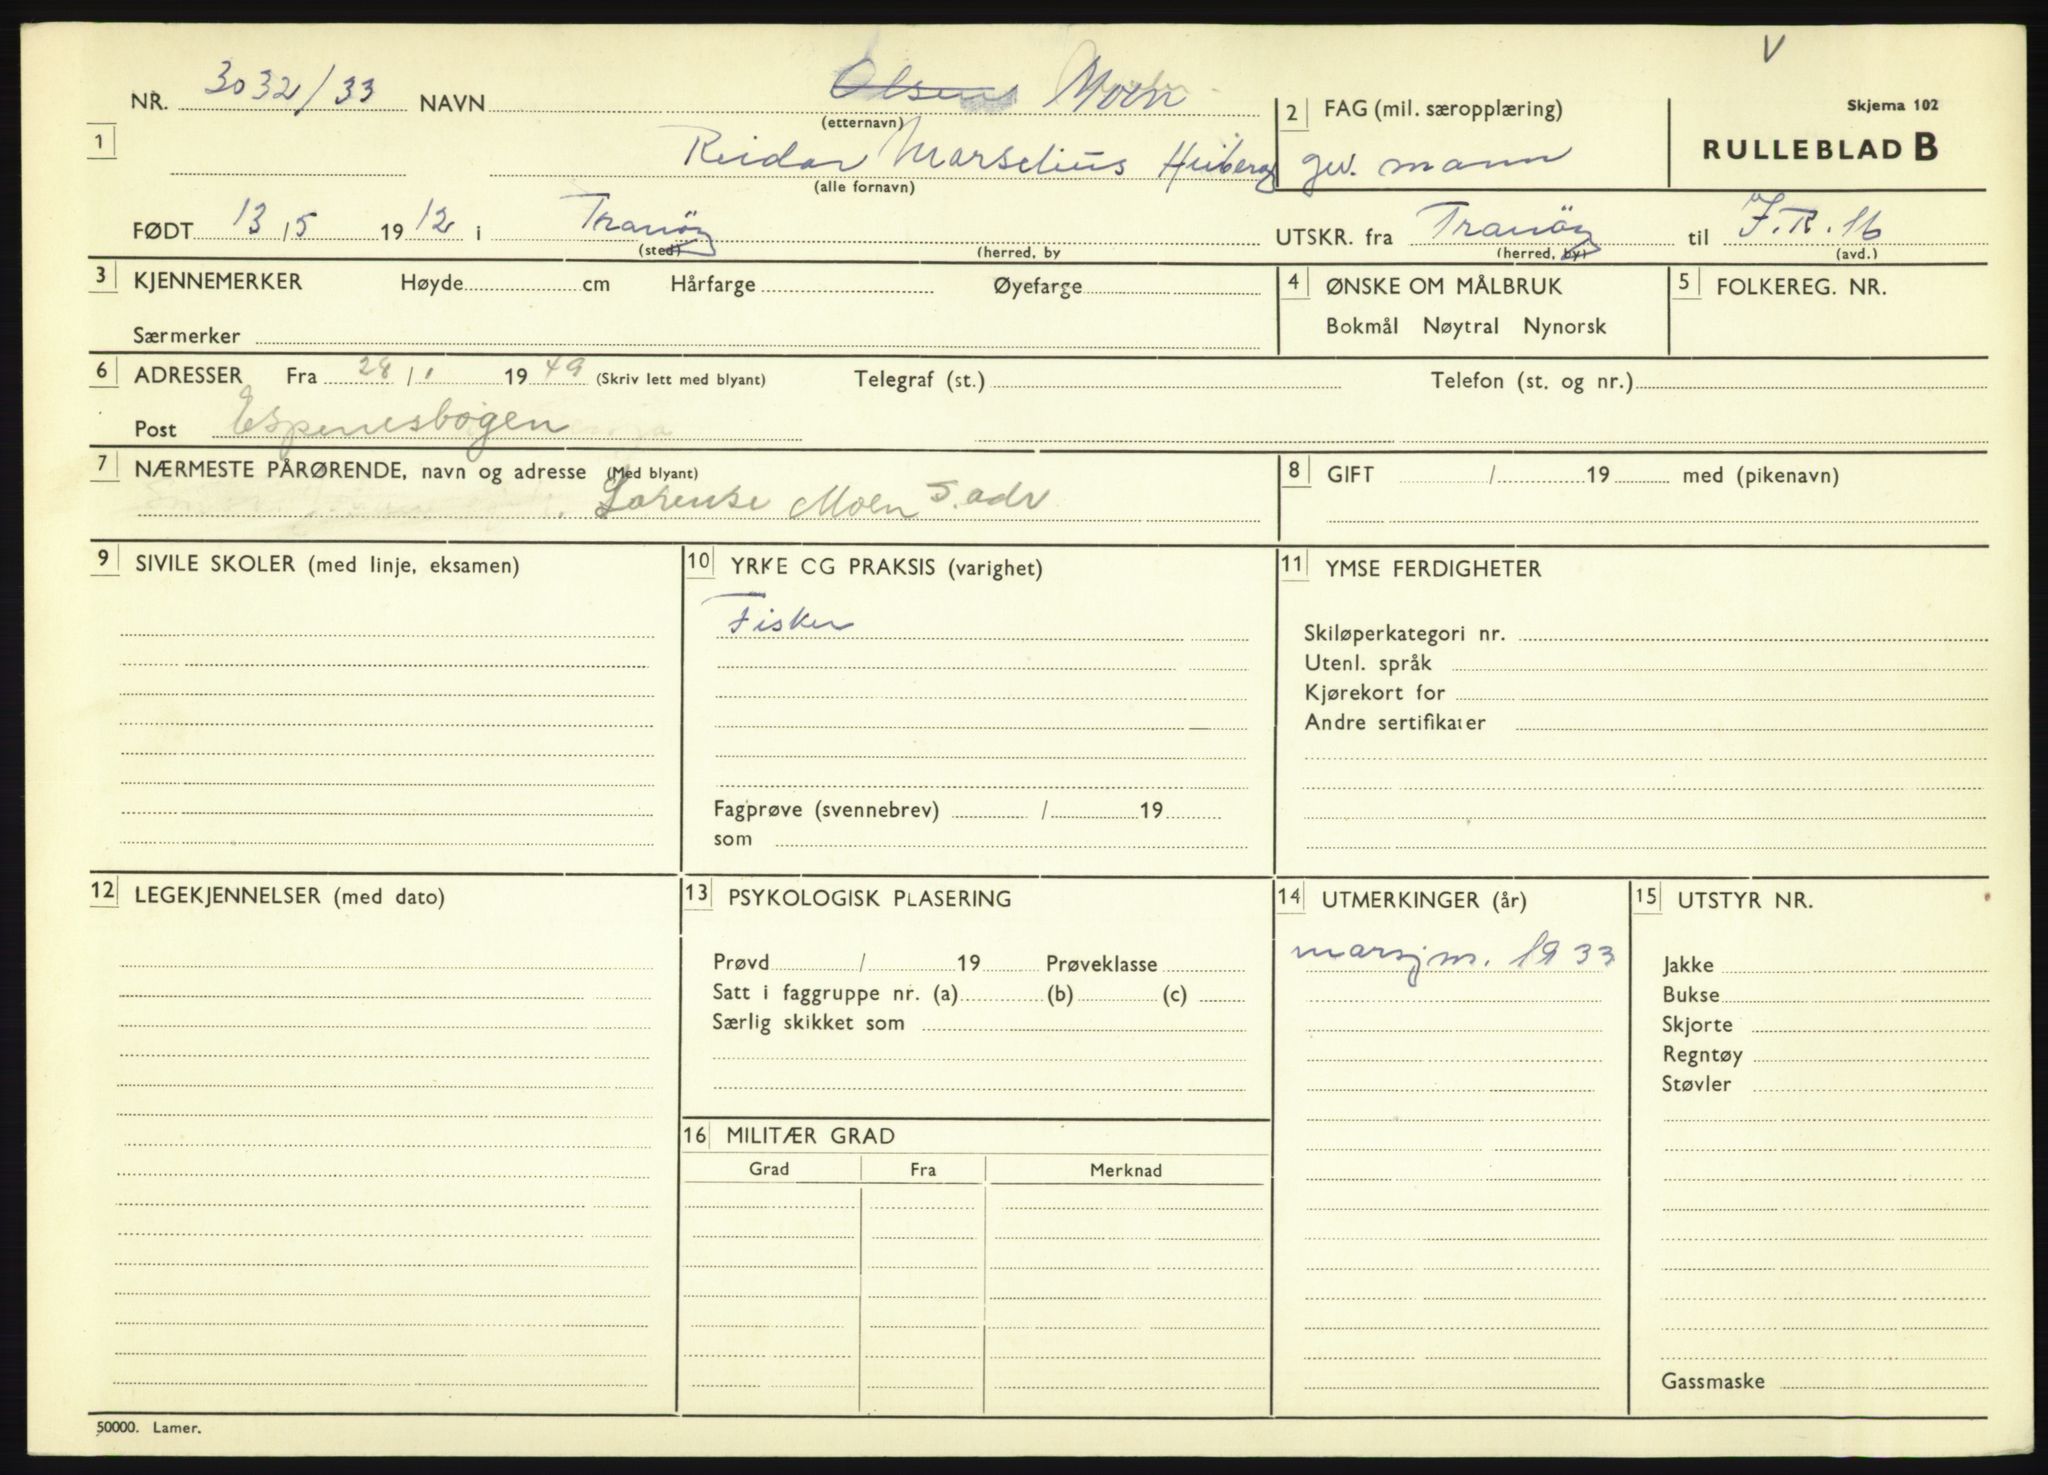 V
NR. 3032/33 NAVN Olsen Moen
(etternavn)
2 FAG (mil. særopplæring)
Skjema 102
RULLEBLAD B
1
Reidar Marselius Heiberg gev. mann
(alle fornavn)
FØDT 13/5 1912 i Tranöy UTSKR. fra Tranöy til I.R. 16
(sted) (herred, by (herred, by) (avd.)
3 KJENNEMERKER Høyde cm Hårfarge Øyefarge
Særmerker
4 ØNSKE OM MÅLBRUK
Bokmål Nøytral Nynorsk
5 FOLKEREG. NR.
6 ADRESSER Fra 28/1 1949 (Skriv lett med blyant) Telegraf (st.) Telefon (st. og nr.)
Post Espenesbogen
7 NÆRMESTE PÅRØRENDE, navn og adresse (Med blyant)
Lorense Moen s. adr
8 GIFT / 19 med (pikenavn)
9 SIVILE SKOLER (med linje, eksamen)
10 YRKE CG PRAKSIS (varighet)
Fisker
Fagprøve (svennebrev) / 19
som
11 YMSE FERDIGHETER
Skiløperkategori nr.
Utenl. språk
Kjørekort for
Andre sertifikater
12 LEGEKJENNELSER (med dato)
13 PSYKOLOGISK PLASERING
Prøvd / 19 Prøveklasse
Satt i faggruppe nr. (a) (b) (c)
Særlig skikket som
14 UTMERKINGER (år)
marsjm. 1933
15 UTSTYR NR.
Jakke
Bukse
Skjorte
Regntøy
Støvler
Gassmaske
16 MILITÆR GRAD
Grad Fra Merknad
50000. Lamer.